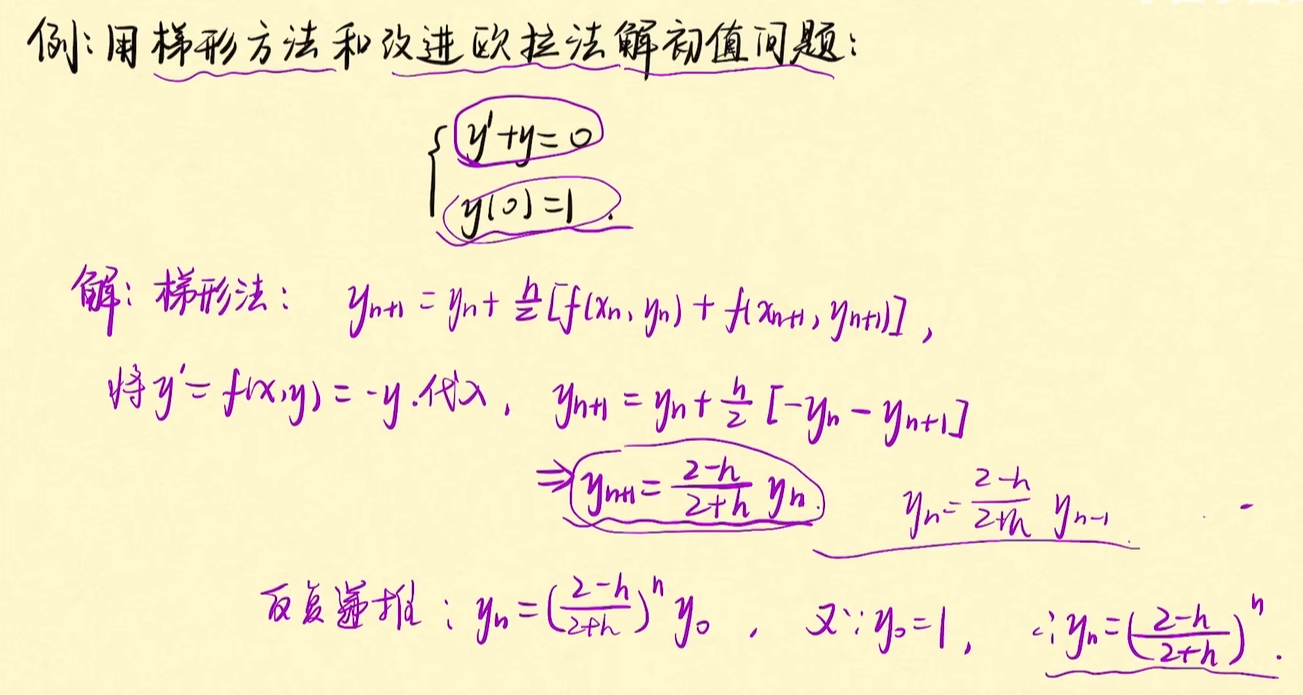 例：用梯形方法和改进欧拉法解初值问题：
{ y′+y=0
y(0)=1.
解：梯形法： yₙ₊₁ = yₙ + h/2 [f(xₙ, yₙ) + f(xₙ₊₁, yₙ₊₁)]，
将 y′ = f(x,y) = -y 代入， yₙ₊₁ = yₙ + h/2 [-yₙ - yₙ₊₁]
⇒ yₙ₊₁ = (2-h)/(2+h) yₙ. yₙ = (2-h)/(2+h) yₙ₋₁
反复递推：yₙ = ((2-h)/(2+h))ⁿ y₀ ， 又∵ y₀=1， ∴ yₙ = ((2-h)/(2+h))ⁿ.